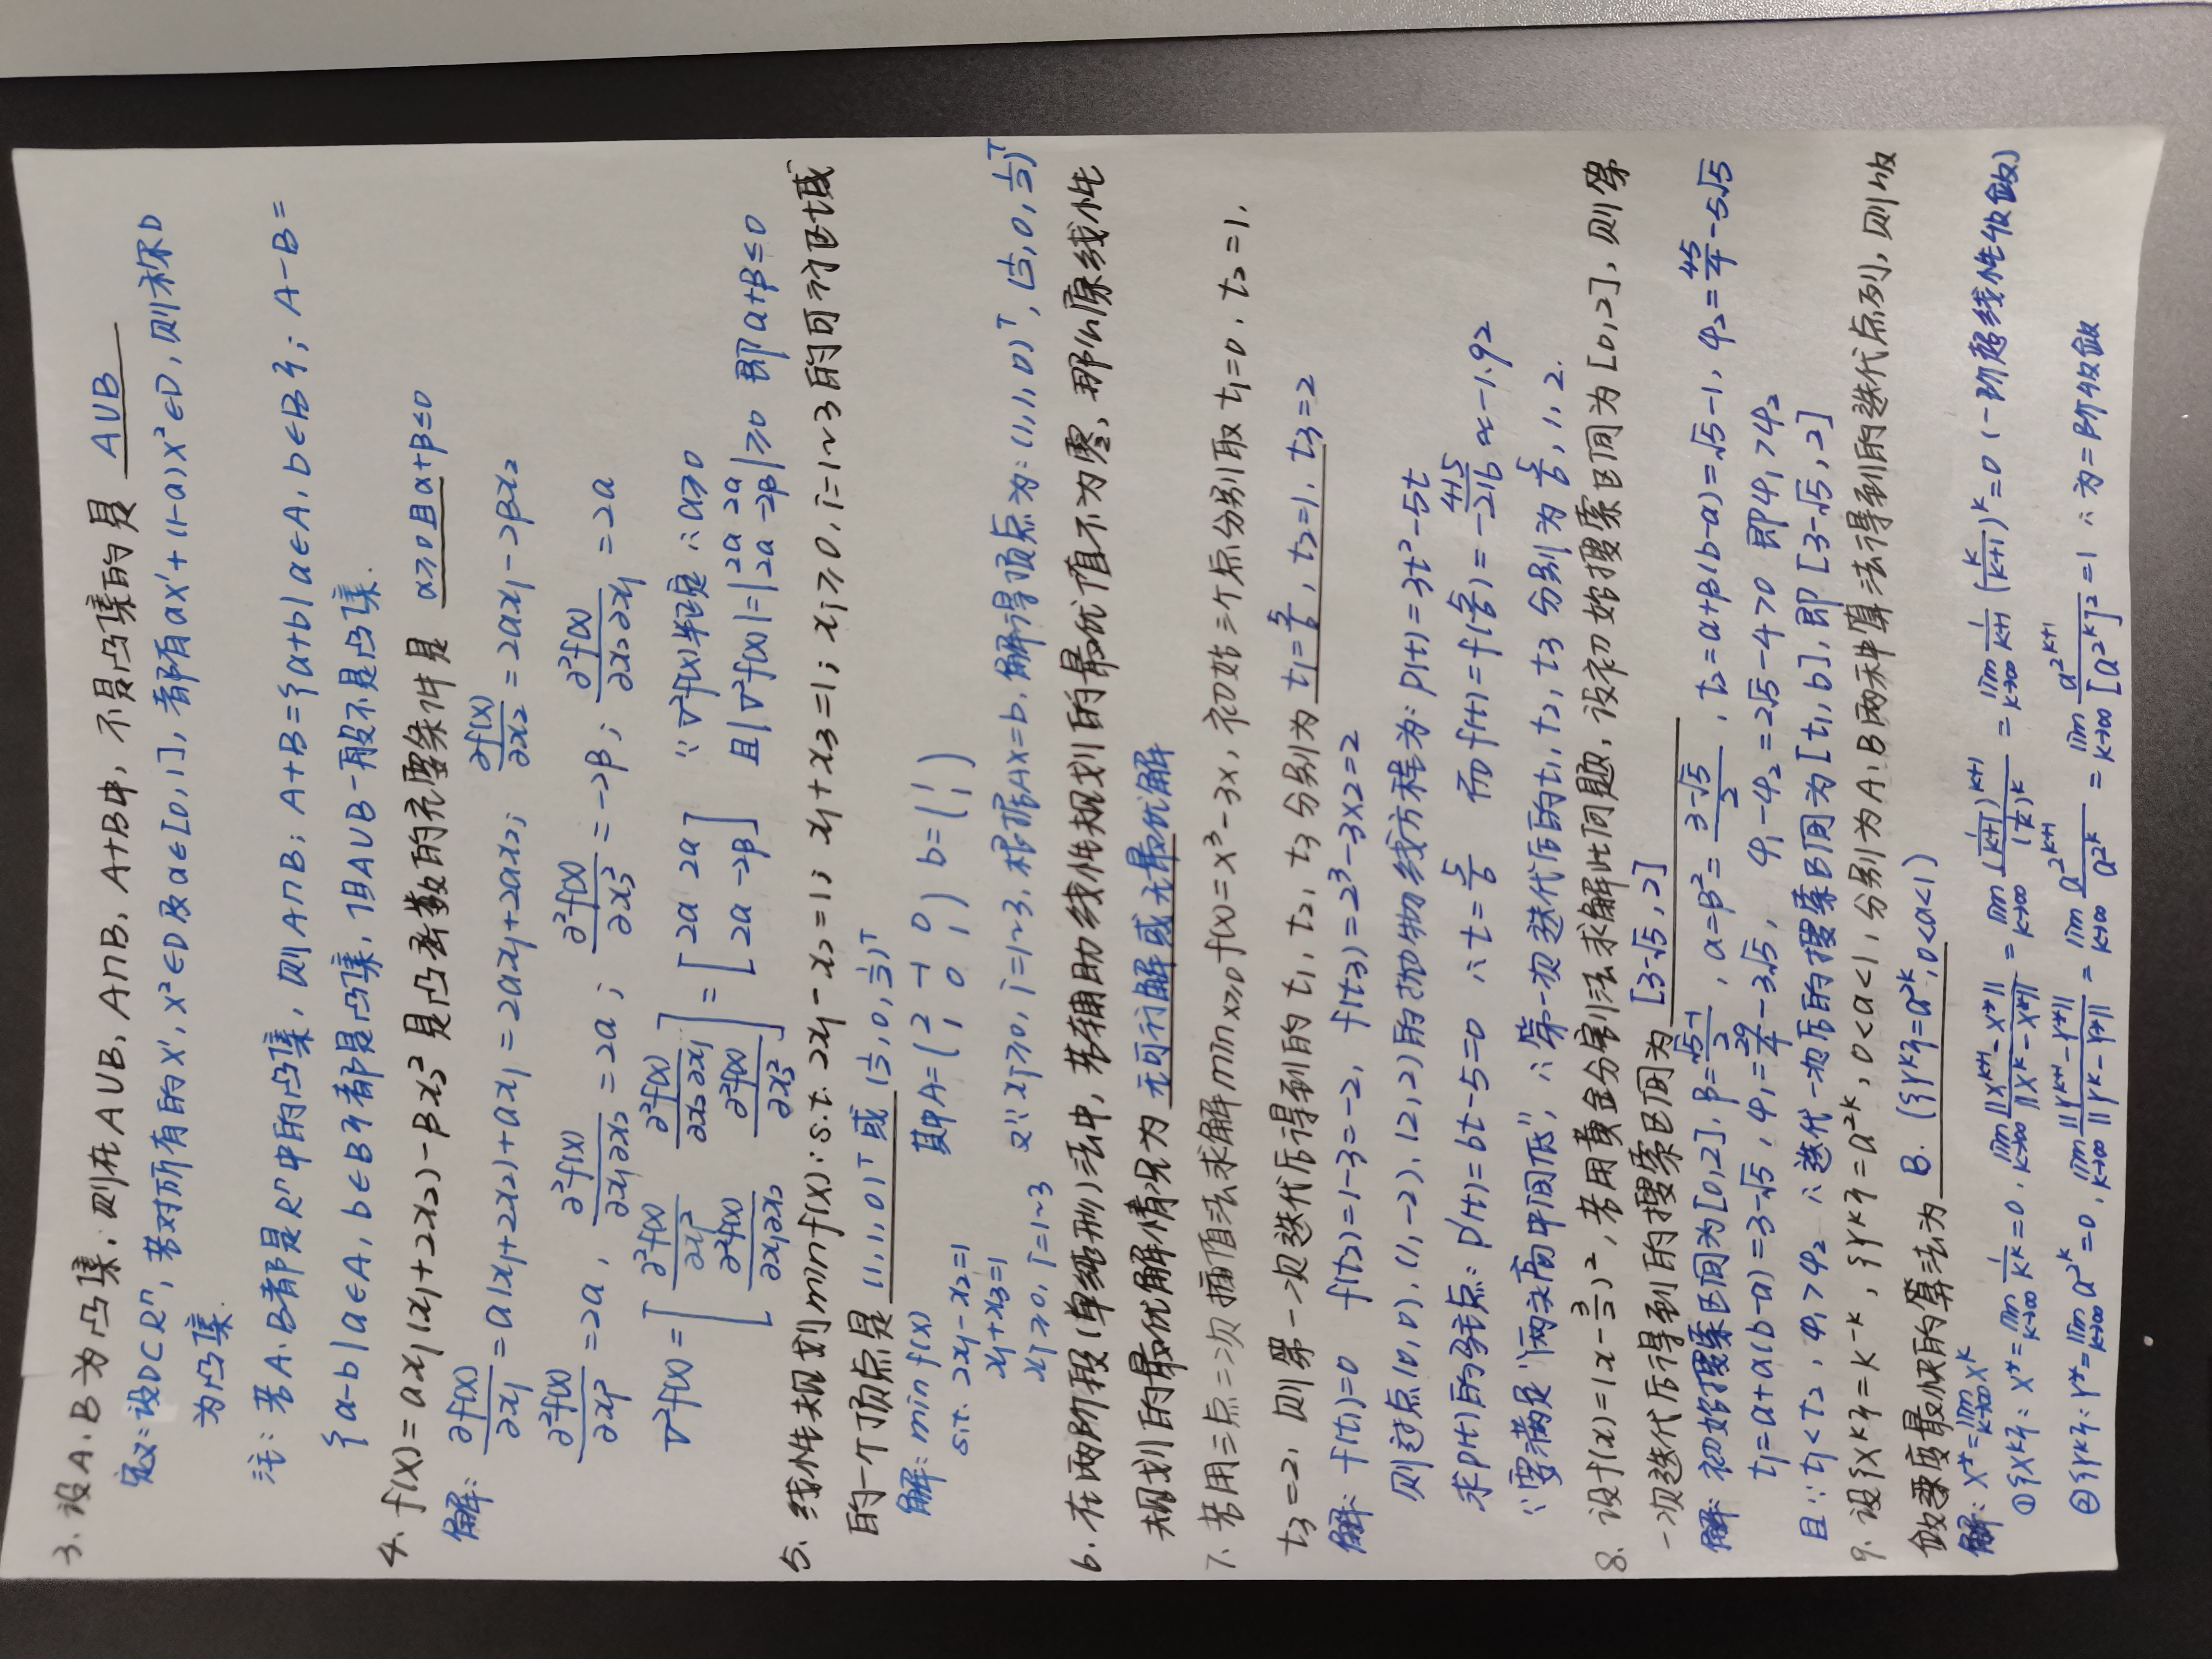 3、设A、B为凸集，则在A∪B，A∩B，A+B中，不是凸集的是 A∪B
定义：设D⊂Rⁿ，若对所有的X¹，X²∈D及α∈[0,1]，都有αX¹+(1-α)X²∈D，则称D
为凸集.
注：若A、B都是Rⁿ中的凸集，则A∩B；A+B={a+b|a∈A，b∈B}；A-B=
{a-b|a∈A，b∈B}都是凸集，但A∪B一般不是凸集.
4、f(X)=αx₁(x₁+2x₂)-βx₂²是凸函数的充要条件是 α≥0且α+β≤0
解：∂f(X)/∂x₁=α(x₁+2x₂)+αx₁=2αx₁+2αx₂；∂f(X)/∂x₂=2αx₁-2βx₂
∂²f(X)/∂x₁²=2α，∂²f(X)/∂x₁∂x₂=2α；∂²f(X)/∂x₂²=-2β；∂²f(X)/∂x₂∂x₁=2α
∇²f(X)=[∂²f(X)/∂x₁² ∂²f(X)/∂x₂∂x₁; ∂²f(X)/∂x₁∂x₂ ∂²f(X)/∂x₂²]=[2α 2α; 2α -2β] ∵∇²f(X)半正定 ∴α≥0
且|∇²f(X)|=|2α 2α; 2α -2β|≥0 即α+β≤0
5、线性规划min f(X)：s.t. 2x₁-x₂=1；x₁+x₃=1；xᵢ≥0，i=1~3的可行区域
的一个顶点是 (1,1,0)ᵀ或(1/2,0,1/2)ᵀ
解：min f(X) 其中A=(2 -1 0; 1 0 1) b=(1; 1)
s.t. 2x₁-x₂=1
x₁+x₃=1
xᵢ≥0，i=1~3 又∵xᵢ≥0，i=1~3，根据AX=b，解得顶点为：(1,1,0)ᵀ，(1/2,0,1/2)ᵀ
6、在两阶段(单纯形)法中，若辅助线性规划的最优值不为零，那么原线性
规划的最优解情况为 无可行解或无最优解
7、若用三点二次插值法求解min x≥0 f(x)=x³-3x，初始三个点分别取t₁=0，t₂=1，
t₃=2，则第一次迭代后得到的t₁，t₂，t₃分别为 t₁=5/6，t₂=1，t₃=2
解：f(t₁)=0 f(t₂)=1-3=-2，f(t₃)=2³-3×2=2
则过点(0,0)，(1,-2)，(2,2)的抛物线方程为：p(t)=3t²-5t
求p(t)的驻点：p'(t)=6t-5=0 ∴t=5/6 而f(t)=f(5/6)=-415/216≈-1.92
∵要满足“两头高中间低”，∴第一次迭代后的t₁，t₂，t₃分别为5/6，1，2.
8、设f(x)=(x-3/2)²，若用黄金分割法求解此问题，设初始搜索区间为[0,2]，则第
一次迭代后得到的搜索区间为 [3-√5,2]
解：初始搜索区间为[0,2]，β=(√5-1)/2，α=β²=(3-√5)/2，t₂=a+β(b-a)=√5-1，φ₂=45/4-5√5
t₁=a+α(b-a)=3-√5，φ₁=29/4-3√5，φ₁-φ₂=2√5-4>0 即φ₁>φ₂
且∵t₁<t₂，φ₁>φ₂ ∴迭代一次后的搜索区间为[t₁,b]，即[3-√5,2]
9、设{Xᵏ}=k⁻ᵏ，{Yᵏ}=a^2k，0<a<1，分别为A、B两种算法得到的迭代点列，则收
敛速度最快的算法为 B.({Yᵏ}=a^2k,0<a<1)
解：X*=lim k→∞ Xᵏ
①{Xᵏ}：X*=lim k→∞ 1/kᵏ=0，lim k→∞ ||X^(k+1)-X*||/||Xᵏ-X*||=lim k→∞ (1/(k+1))^(k+1)/(1/k)^k=lim k→∞ 1/(k+1) (k/(k+1))^k=0 (一阶超线性收敛)
②{Yᵏ}：Y*=lim k→∞ a^(2^k)=0，lim k→∞ ||Y^(k+1)-Y*||/||Yᵏ-Y*||=lim k→∞ a^(2^(k+1))/a^(2^k)=lim k→∞ a^(2^(k+1))/[a^(2^k)]²=1 ∴为二阶收敛